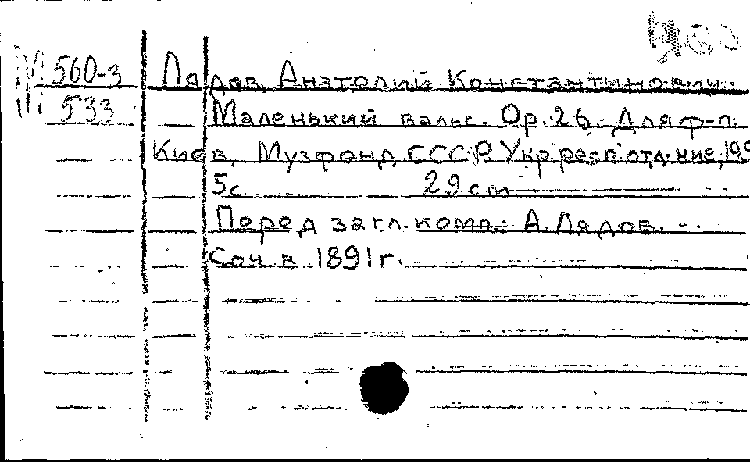 560-3
533
Лядов, Анатолий Константинович.
Маленький вальс. Ор. 26. Для ф-п.
Киев, Музфонд СССР. Укр. респ. отд-ние, 19
5с 29 см
Перед загл. комп.: А. Лядов.
Соч. в 1891 г.